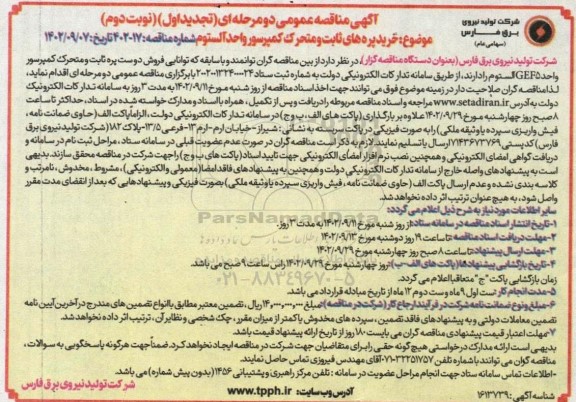 شرکت تولید نیروی
برق فارس
(سهامی عام)
آگهی مناقصه عمومی دو مرحله ای (تجدید اول) (نوبت دوم)
موضوع: خرید پره های ثابت و متحرک کمپرسور واحد آلستوم شماره مناقصه: ۱۷-۴۰۲ تاریخ: ۱۴۰۲/۰۹/۰۷
شرکت تولید نیروی برق فارس (بعنوان دستگاه مناقصه گزار)، در نظر دارد از بین مناقصه گران توانمند و باسابقه که توانایی فروش دوست پره ثابت و متحرک کمپرسور
واحد GEF5 آلستوم را دارند، از طریق سامانه تدارکات الکترونیکی دولت به شماره ثبت ستاد با برگزاری مناقصه عمومی دو مرحله ای اقدام نماید،
لذا مناقصه گران صلاحیت دار در زمینه موضوع فوق می توانند جهت اخذ اسناد مناقصه از روز شنبه مورخ ۱۴۰۲/۰۹/۱۱ به مدت ۳ روز به سامانه تدارکات الکترونیک
دولت به آدرس www.setadiran.ir مراجعه و اسناد مناقصه مربوطه را دریافت و پس از تکمیل، همراه با اسناد و مدارک خواسته شده در اسناد، حداکثر تا ساعت
۸ صبح روز چهارشنبه مورخ ۱۴۰۲/۰۹/۲۹ علاوه بر بارگذاری (پاکت های الف، ب و ج) در سامانه تدارکات الکترونیکی دولت، الزاماً پاکت الف (حاوی ضمانت نامه،
فیش واریزی سپرده یا وثیقه ملکی) را به صورت فیزیکی در پاکت در بسته به نشانی: شیراز - خیابان ارم - ارم ۱۳ - فرعی ۱۳/۵ - پلاک ۱۸۲ (شرکت تولید نیروی برق
فارس) کدپستی ۷۱۴۳۶۷۳۷۶۹ ارسال یا تسلیم نمایند. لازم به ذکر است مناقصه گران در صورت عدم عضویت قبلی در سامانه ستاد، مراحل ثبت نام در سامانه و
دریافت گواهی امضای الکترونیکی و همچنین نصب نرم افزار امضای الکترونیکی جهت تایید اسناد (پاکت های ب و ج) را جهت شرکت در مناقصه محقق سازند. بدیهی
است به پیشنهادهای واصله خارج از سامانه تدارکات الکترونیکی دولت و همچنین به پیشنهادهای فاقد امضا (معمولی و الکترونیکی)، مشروط، مخدوش، نامرتب و
کلاسه بندی نشده و عدم ارسال پاکت الف (حاوی ضمانت نامه، فیش واریزی سپرده یا وثیقه ملکی) بصورت فیزیکی و پیشنهادهایی که بعد از انقضای مدت مقرر
واصل شود، به هیچ عنوان ترتیب اثر داده نخواهد شد.
سایر اطلاعات مورد نیاز به شرح ذیل اعلام می گردد:
۱- تاریخ انتشار اسناد مناقصه در سامانه ستاد: از روز شنبه مورخ ۱۴۰۲/۰۹/۱۱ به مدت ۳ روز.
۲- مهلت دریافت اسناد مناقصه: تا ساعت ۱۹ روز دوشنبه مورخ ۱۴۰۲/۰۹/۱۳
۳- مهلت ارسال پیشنهاد: تا ساعت ۸ صبح روز چهارشنبه مورخ ۱۴۰۲/۰۹/۲۹
۴- تاریخ بازگشایی پیشنهادها (پاکت های الف-ب): روز چهارشنبه مورخ ۱۴۰۲/۰۹/۲۹ راس ساعت ۹ صبح می باشد.
زمان بازگشایی پاکت "ج" متعاقباً اعلام می گردد.
۵- مدت انجام کار: ست اول ۹ ماه و ست دوم ۱۲ ماه از تاریخ مبادله قرارداد می باشد.
۶- مبلغ و نوع ضمانت نامه شرکت در فرآیند ارجاع کار (شرکت در مناقصه): مبلغ ریال، تضمین معتبر مطابق با انواع تضمین های مندرج در آخرین آیین نامه
تضمین معاملات دولتی و به پیشنهادهای فاقد تضمین، سپرده های مخدوش یا کمتر از میزان مقرر، چک شخصی و نظایر آن، ترتیب اثر داده نخواهد شد.
۷- مهلت اعتبار قیمت پیشنهادی مناقصه گران می بایست ۱۸۰ روز از تاریخ ارائه پیشنهاد قیمت باشد.
بدیهی است ارائه مدارک درخواستی هیچ گونه حقی را برای متقاضیان جهت شرکت در مناقصه ایجاد نخواهد کرد. ضمناً جهت هرگونه پاسخگویی به سوالات،
مناقصه گران می توانند با شماره تلفن ۳۲۲۵۱۷۵۷-۰۷۱ آقای مهندس فیروزی تماس حاصل نمایند.
-اطلاعات تماس سامانه ستاد جهت انجام مراحل عضویت در سامانه: تلفن مرکز راهبری و پشتیبانی ۱۴۵۶ (بدون پیش شماره) می باشد.
شناسه آگهی: ۱۶۱۳۷۳۹
آدرس وب سایت: www.tpph.ir
شرکت تولید نیروی برق فارس
ParsNamadData
۰۲۱-۸۸۳۴۹۶۷۰-۵